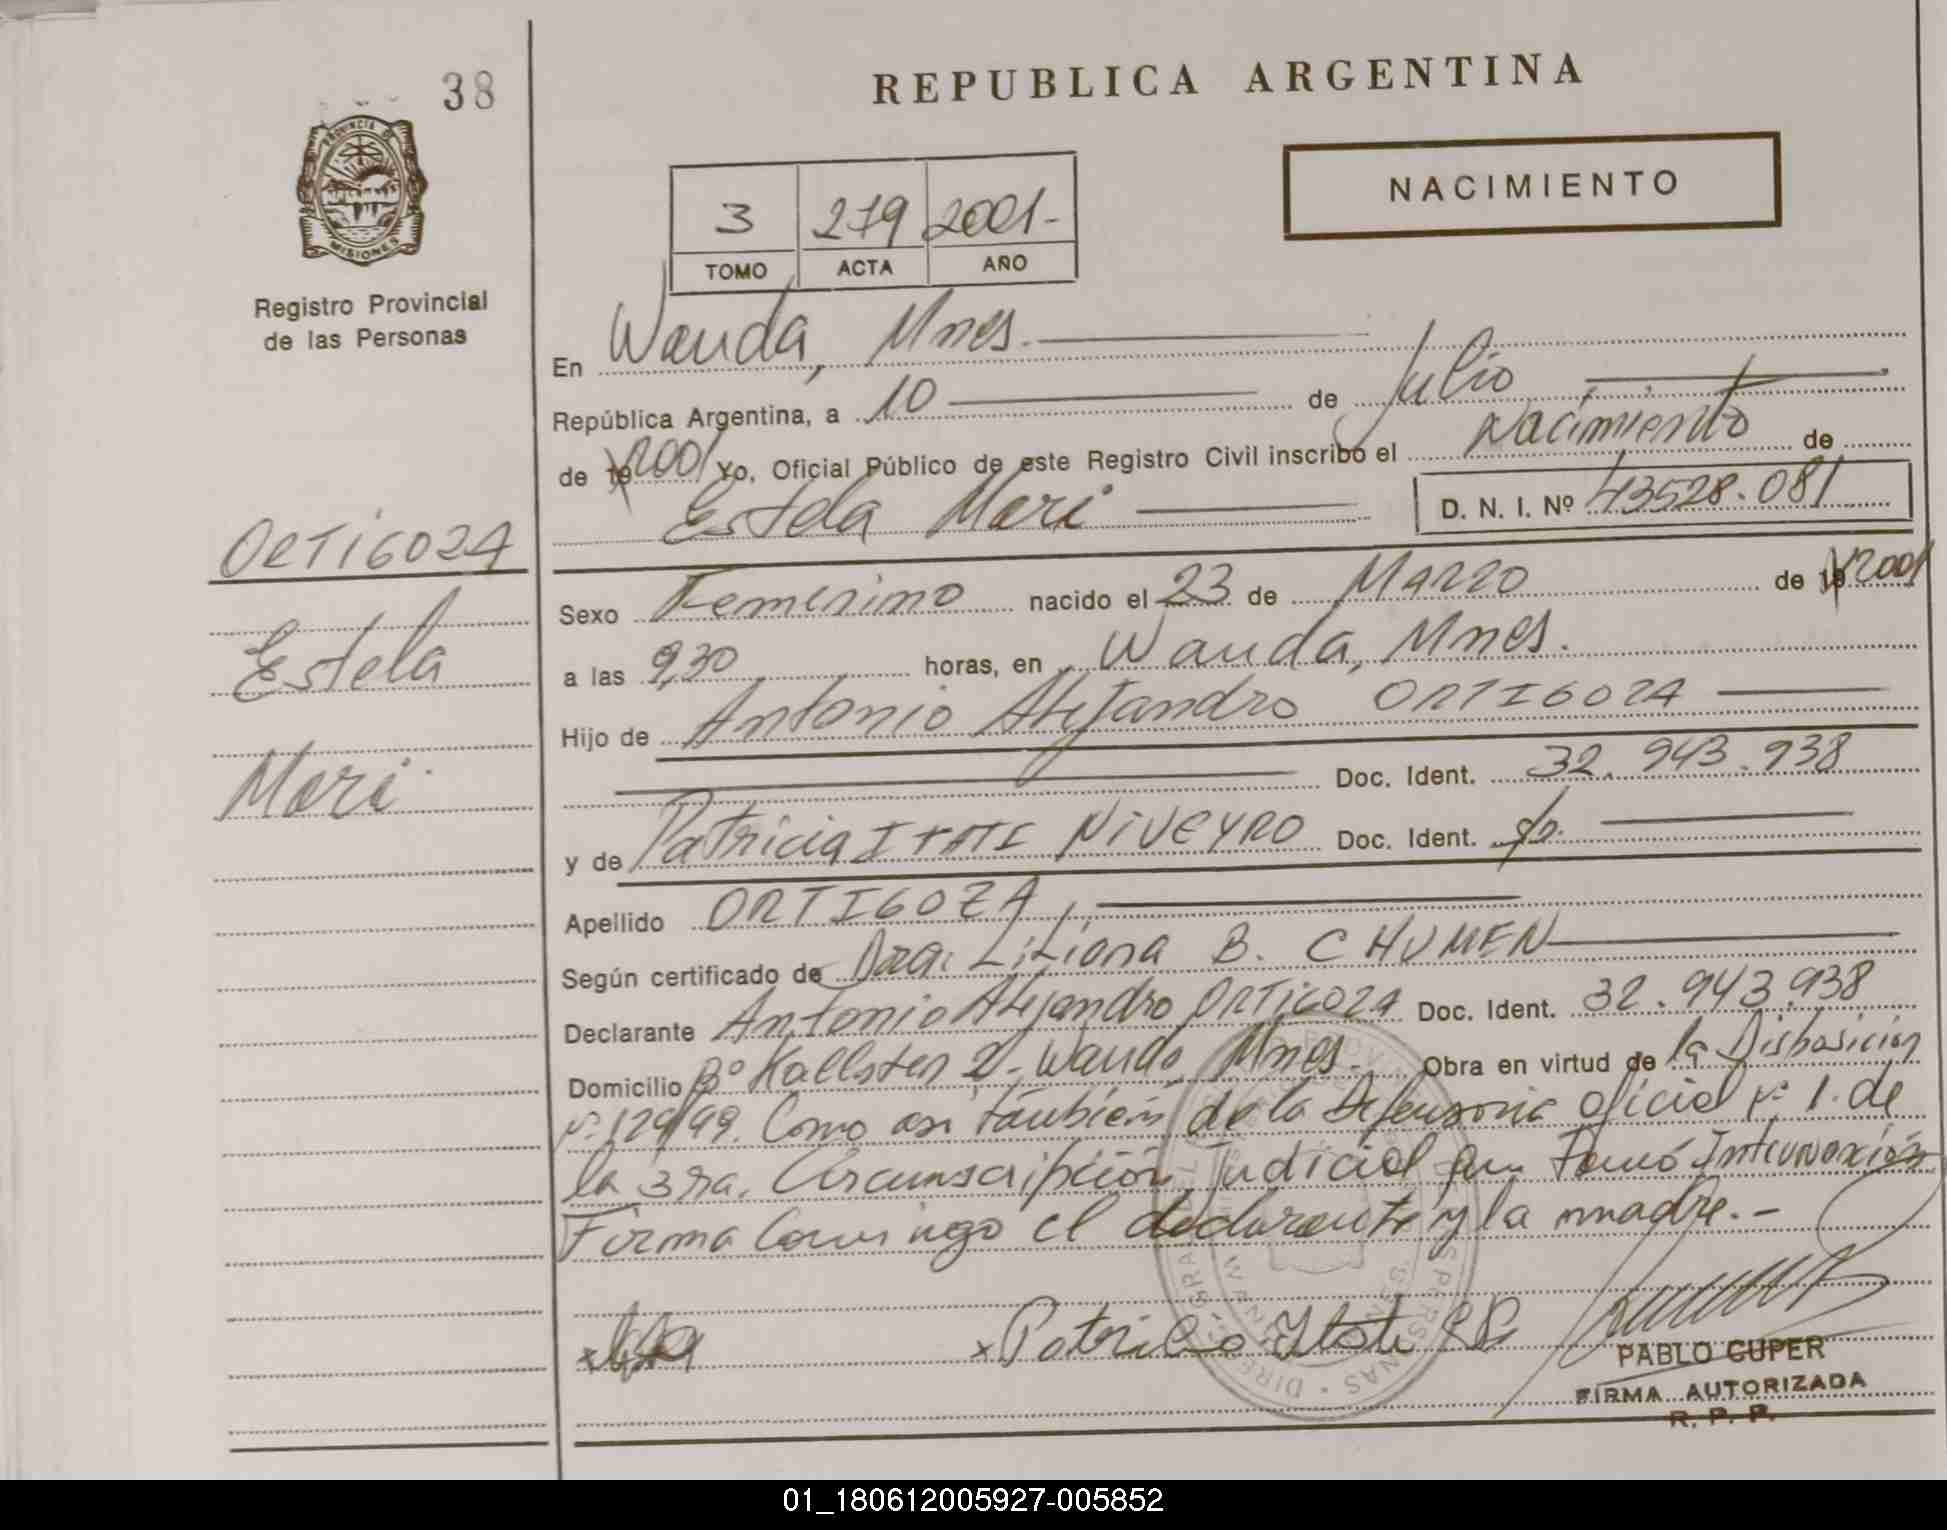 38
REPUBLICA ARGENTINA
PROVINCIA DE
MISIONES
NACIMIENTO
3 279 2001-
TOMO ACTA AÑO
Registro Provincial
de las Personas
En Wanda, Mnes.
República Argentina, a 10 de Julio
de 19 2001 Yo, Oficial Público de este Registro Civil inscribo el Nacimiento de
Estela Mari D. N. I. Nº 43528.081
ORTIGOZA
Estela
Mari
Sexo Femenino nacido el 23 de Marzo de 19 2001
a las 9,30 horas, en Wanda, Mnes.
Hijo de Antonio Alejandro ORTIGOZA
Doc. Ident. 32.943.938
y de Patricia ITATI NIVEYRO Doc. Ident.
Apellido ORTIGOZA
Según certificado de Dra. Liliana B. CHUMEN
Declarante Antonio Alejandro ORTIGOZA Doc. Ident. 32.943.938
Domicilio Bº Kallsten 2- Wanda, Mnes. Obra en virtud de la Disposición
Nº 129/99. Como asi también de la Defensoria oficial Nº 1. de
la 3ra. Circunscripción Judicial que Tomó Intervención
Firma Conmigo el declarante y la madre.-
x x Patricia Itati
PABLO CUPER
FIRMA AUTORIZADA
R. P. P.
01_180612005927-005852